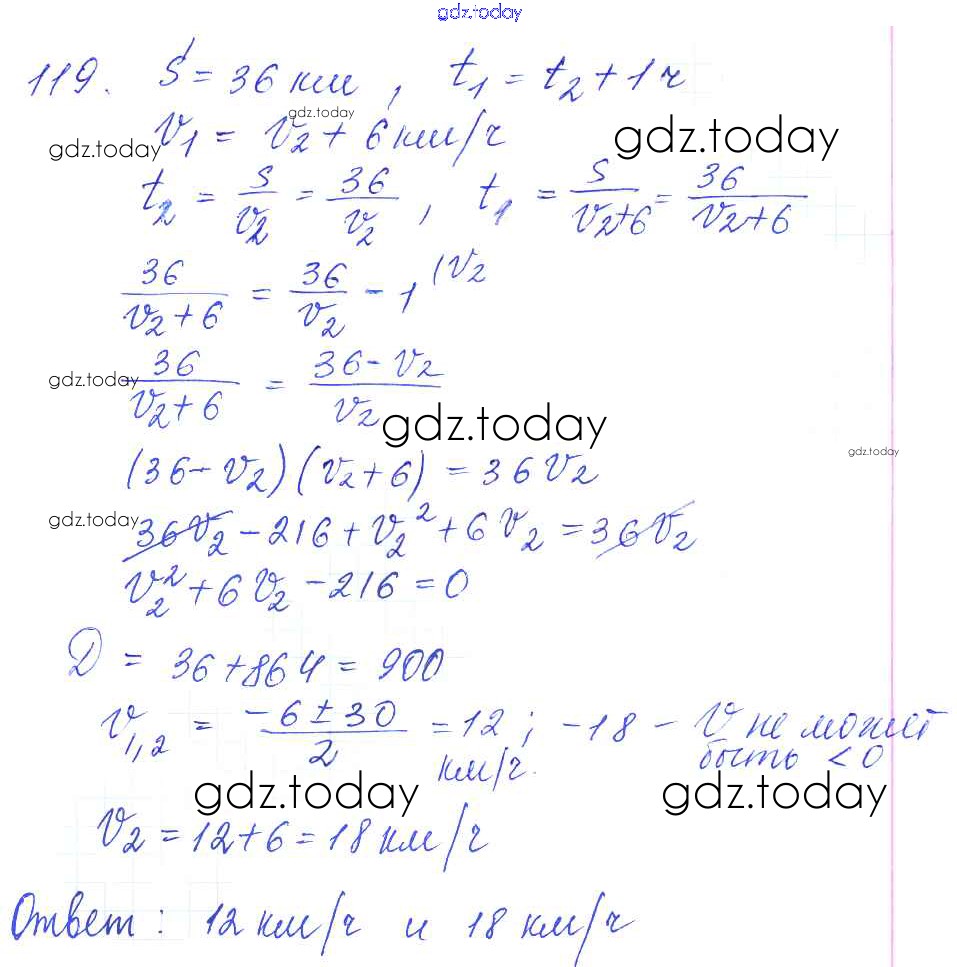 gdz.today
119. S = 36 км, t₁ = t₂ + 1 ч
gdz.today
gdz.today v₁ = v₂ + 6 км/ч gdz.today
t₂ = s/v₂ = 36/v₂, t₁ = s/(v₂+6) = 36/(v₂+6)
36/(v₂+6) = 36/v₂ - 1 (v₂
gdz.today 36/(v₂+6) = (36-v₂)/v₂
gdz.today
(36-v₂)(v₂+6) = 36v₂ gdz.today
gdz.today 36v₂ - 216 + v₂² + 6v₂ = 36v₂
v₂² + 6v₂ - 216 = 0
D = 36 + 864 = 900
v₁,₂ = (-6 ± 30)/2 = 12 км/ч.; -18 - V не может быть < 0
gdz.today gdz.today
v₂ = 12 + 6 = 18 км/ч
Ответ: 12 км/ч и 18 км/ч